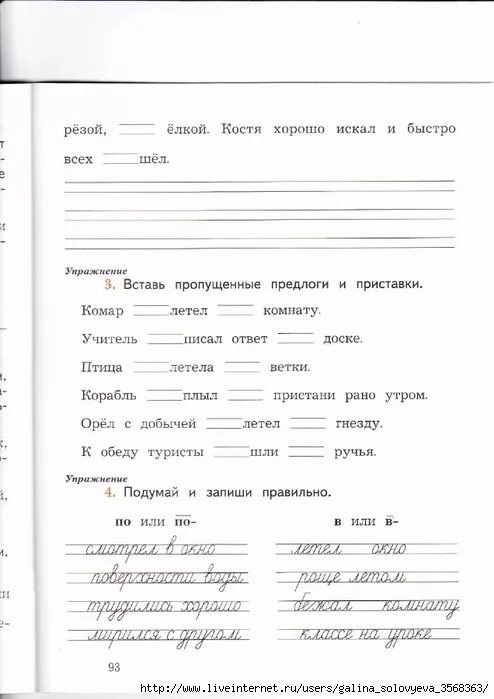 рёзой, ёлкой. Костя хорошо искал и быстро
всех шёл.
Упражнение
3. Вставь пропущенные предлоги и приставки.
Комар летел комнату.
Учитель писал ответ доске.
Птица летела ветки.
Корабль плыл пристани рано утром.
Орёл с добычей летел гнезду.
К обеду туристы шли ручья.
Упражнение
4. Подумай и запиши правильно.
по или по- в или в-
смотрел в окно летел окно
поверхности воды роще летом
трудились хорошо бежал комнату
мирился с другом классе на уроке
93
http://www.liveinternet.ru/users/galina_solovyeva_3568363/